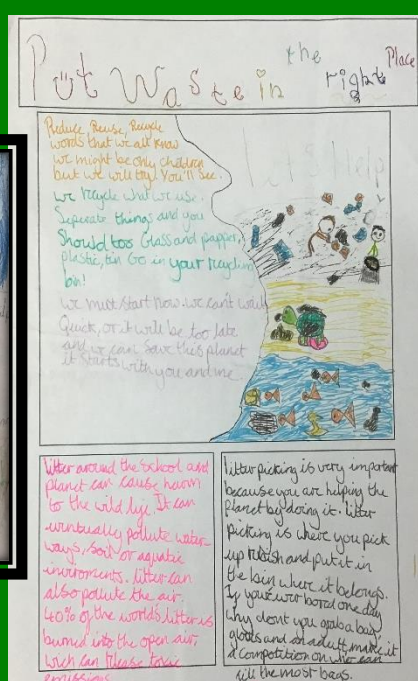 Put Waste in the right Place
Reduce, Reuse, Recycle
words that we all know
we might be only children
but we will try. You'll see.
we recycle what we use.
Seperate things and you
Should too Glass and papper,
plastic, tin Go in your recycling
bin!
we must start now. we can't
Quick, or it will be too late
and we can save this planet
it starts with you and me.
Let's Help
litter around the school and
planet can cause harm
to the wild life. It can
euntually pollute water
ways, soil or aquatic
enviroments. litter can
also pollute the air.
40% of the worlds litter is
burned into the open air,
wich can release toxic
emissions
litter picking is very important
because you are helping the
planet by doing it. litter
picking is where you pick
up trash and put it in
the bin where it belongs.
If your bored one day
why dont you grab a bag,
gloves and an adult, make it
a competition on who can
fill the most bags.